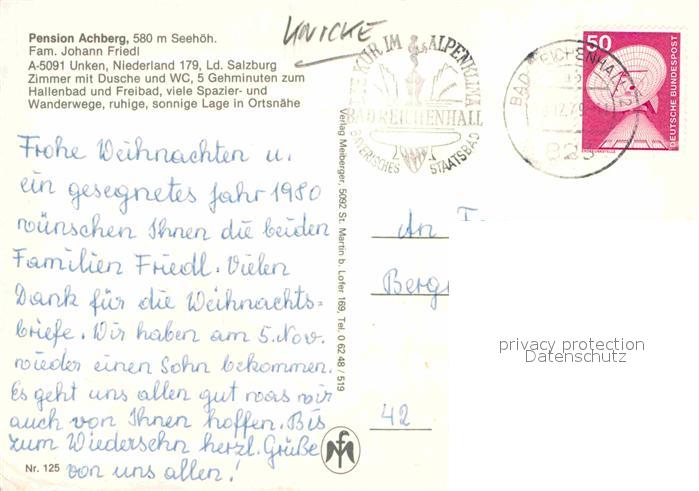 Pension Achberg, 580 m Seehöh.
Fam. Johann Friedl
A-5091 Unken, Niederland 179, Ld. Salzburg
Zimmer mit Dusche und WC, 5 Gehminuten zum
Hallenbad und Freibad, viele Spazier- und
Wanderwege, ruhige, sonnige Lage in Ortsnähe
Frohe Weihnachten u.
ein gesegnetes Jahr 1980
wünschen Ihnen die beiden
Familien Friedl. Vielen
Dank für die Weihnachts=
briefe. Wir haben am 5. Nov.
wieder einen Sohn bekommen.
Es geht uns allen gut was wir
auch von Ihnen hoffen. Bis
zum Wiedersehn herzl. Grüße
von uns allen!
Nr. 125
Verlag Meiberger, 5092 St. Martin b. Lofer 169, Tel. 0 62 48 / 519
UNICKE
KUR IM ALPENKLIMA
BAD REICHENHALL
BAYERISCHES STAATSBAD
BAD REICHENHALL
50
DEUTSCHE BUNDESPOST
An
Berg
42
privacy protection
Datenschutz